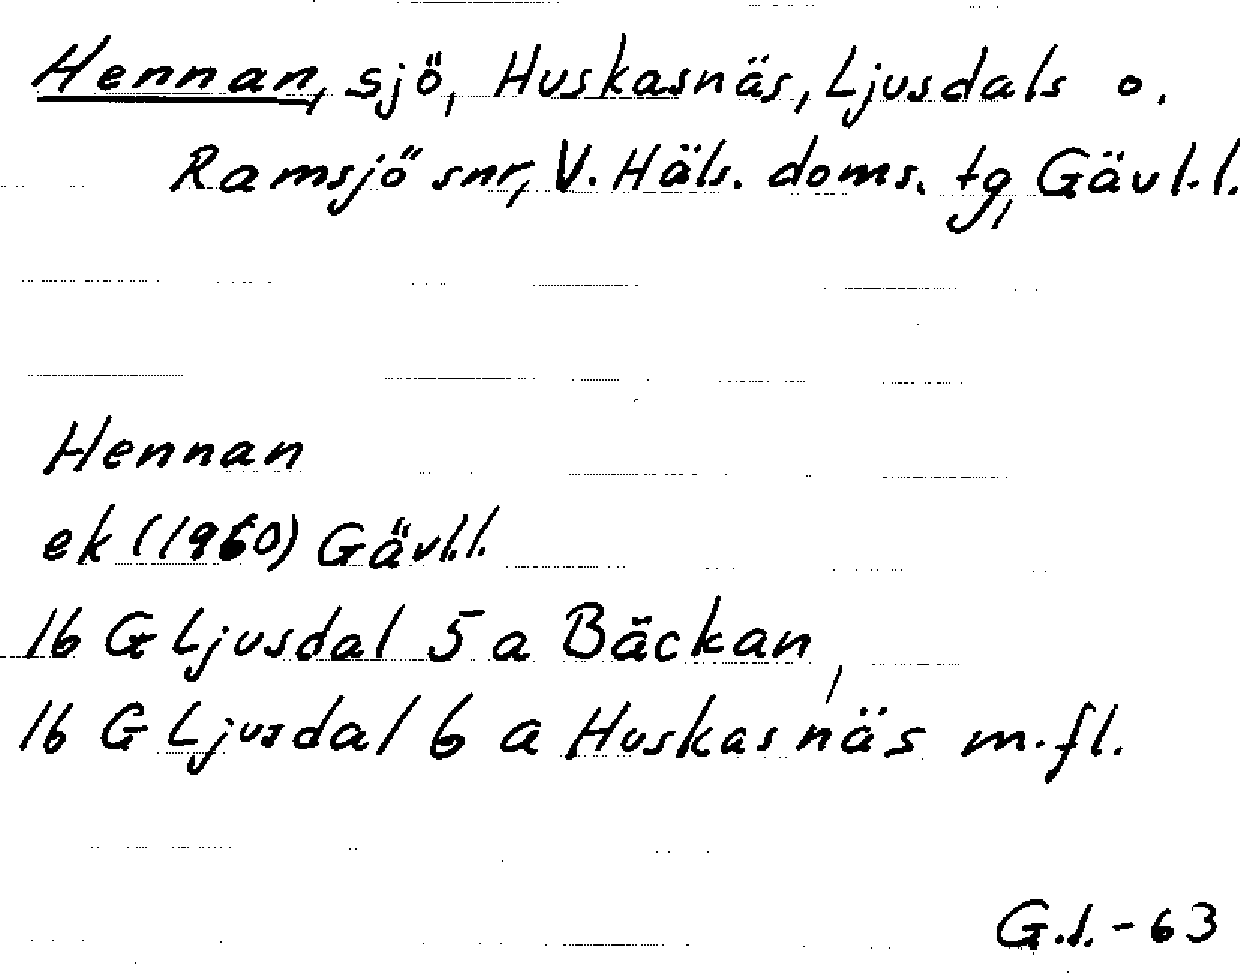 Hennan, sjö, Huskasnäs, Ljusdals o.
Ramsjö snr, V. Häls. doms. tg, Gävl.l.
Hennan
ek (1960) Gävl.l.
16 G Ljusdal 5 a Bäckan,
16 G Ljusdal 6 a Huskasnäs m.fl.
G.l. - 63